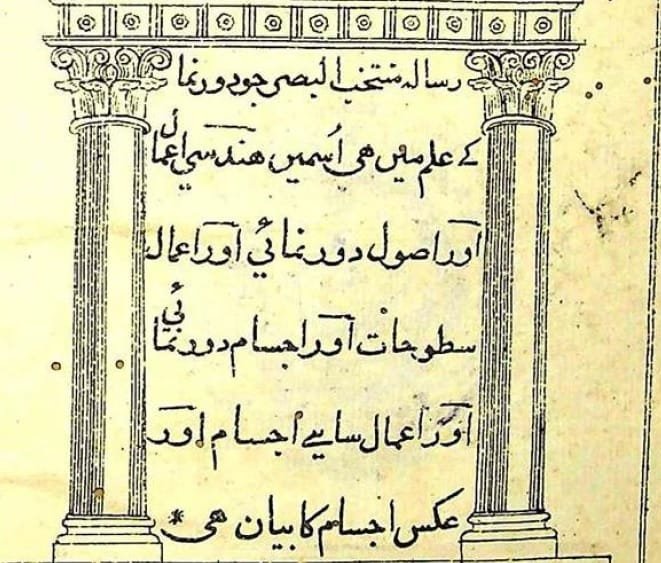 رساله منتخب البصر جو دورنما
کے علم میں هی اُسمیں هندسي اعمال
اور اصول دورنمائي اور اعمال
سطوحات اور اجسام دورنمائي
اور اعمال سایے اجسام اور
عکس اجسام کا بیان هی *